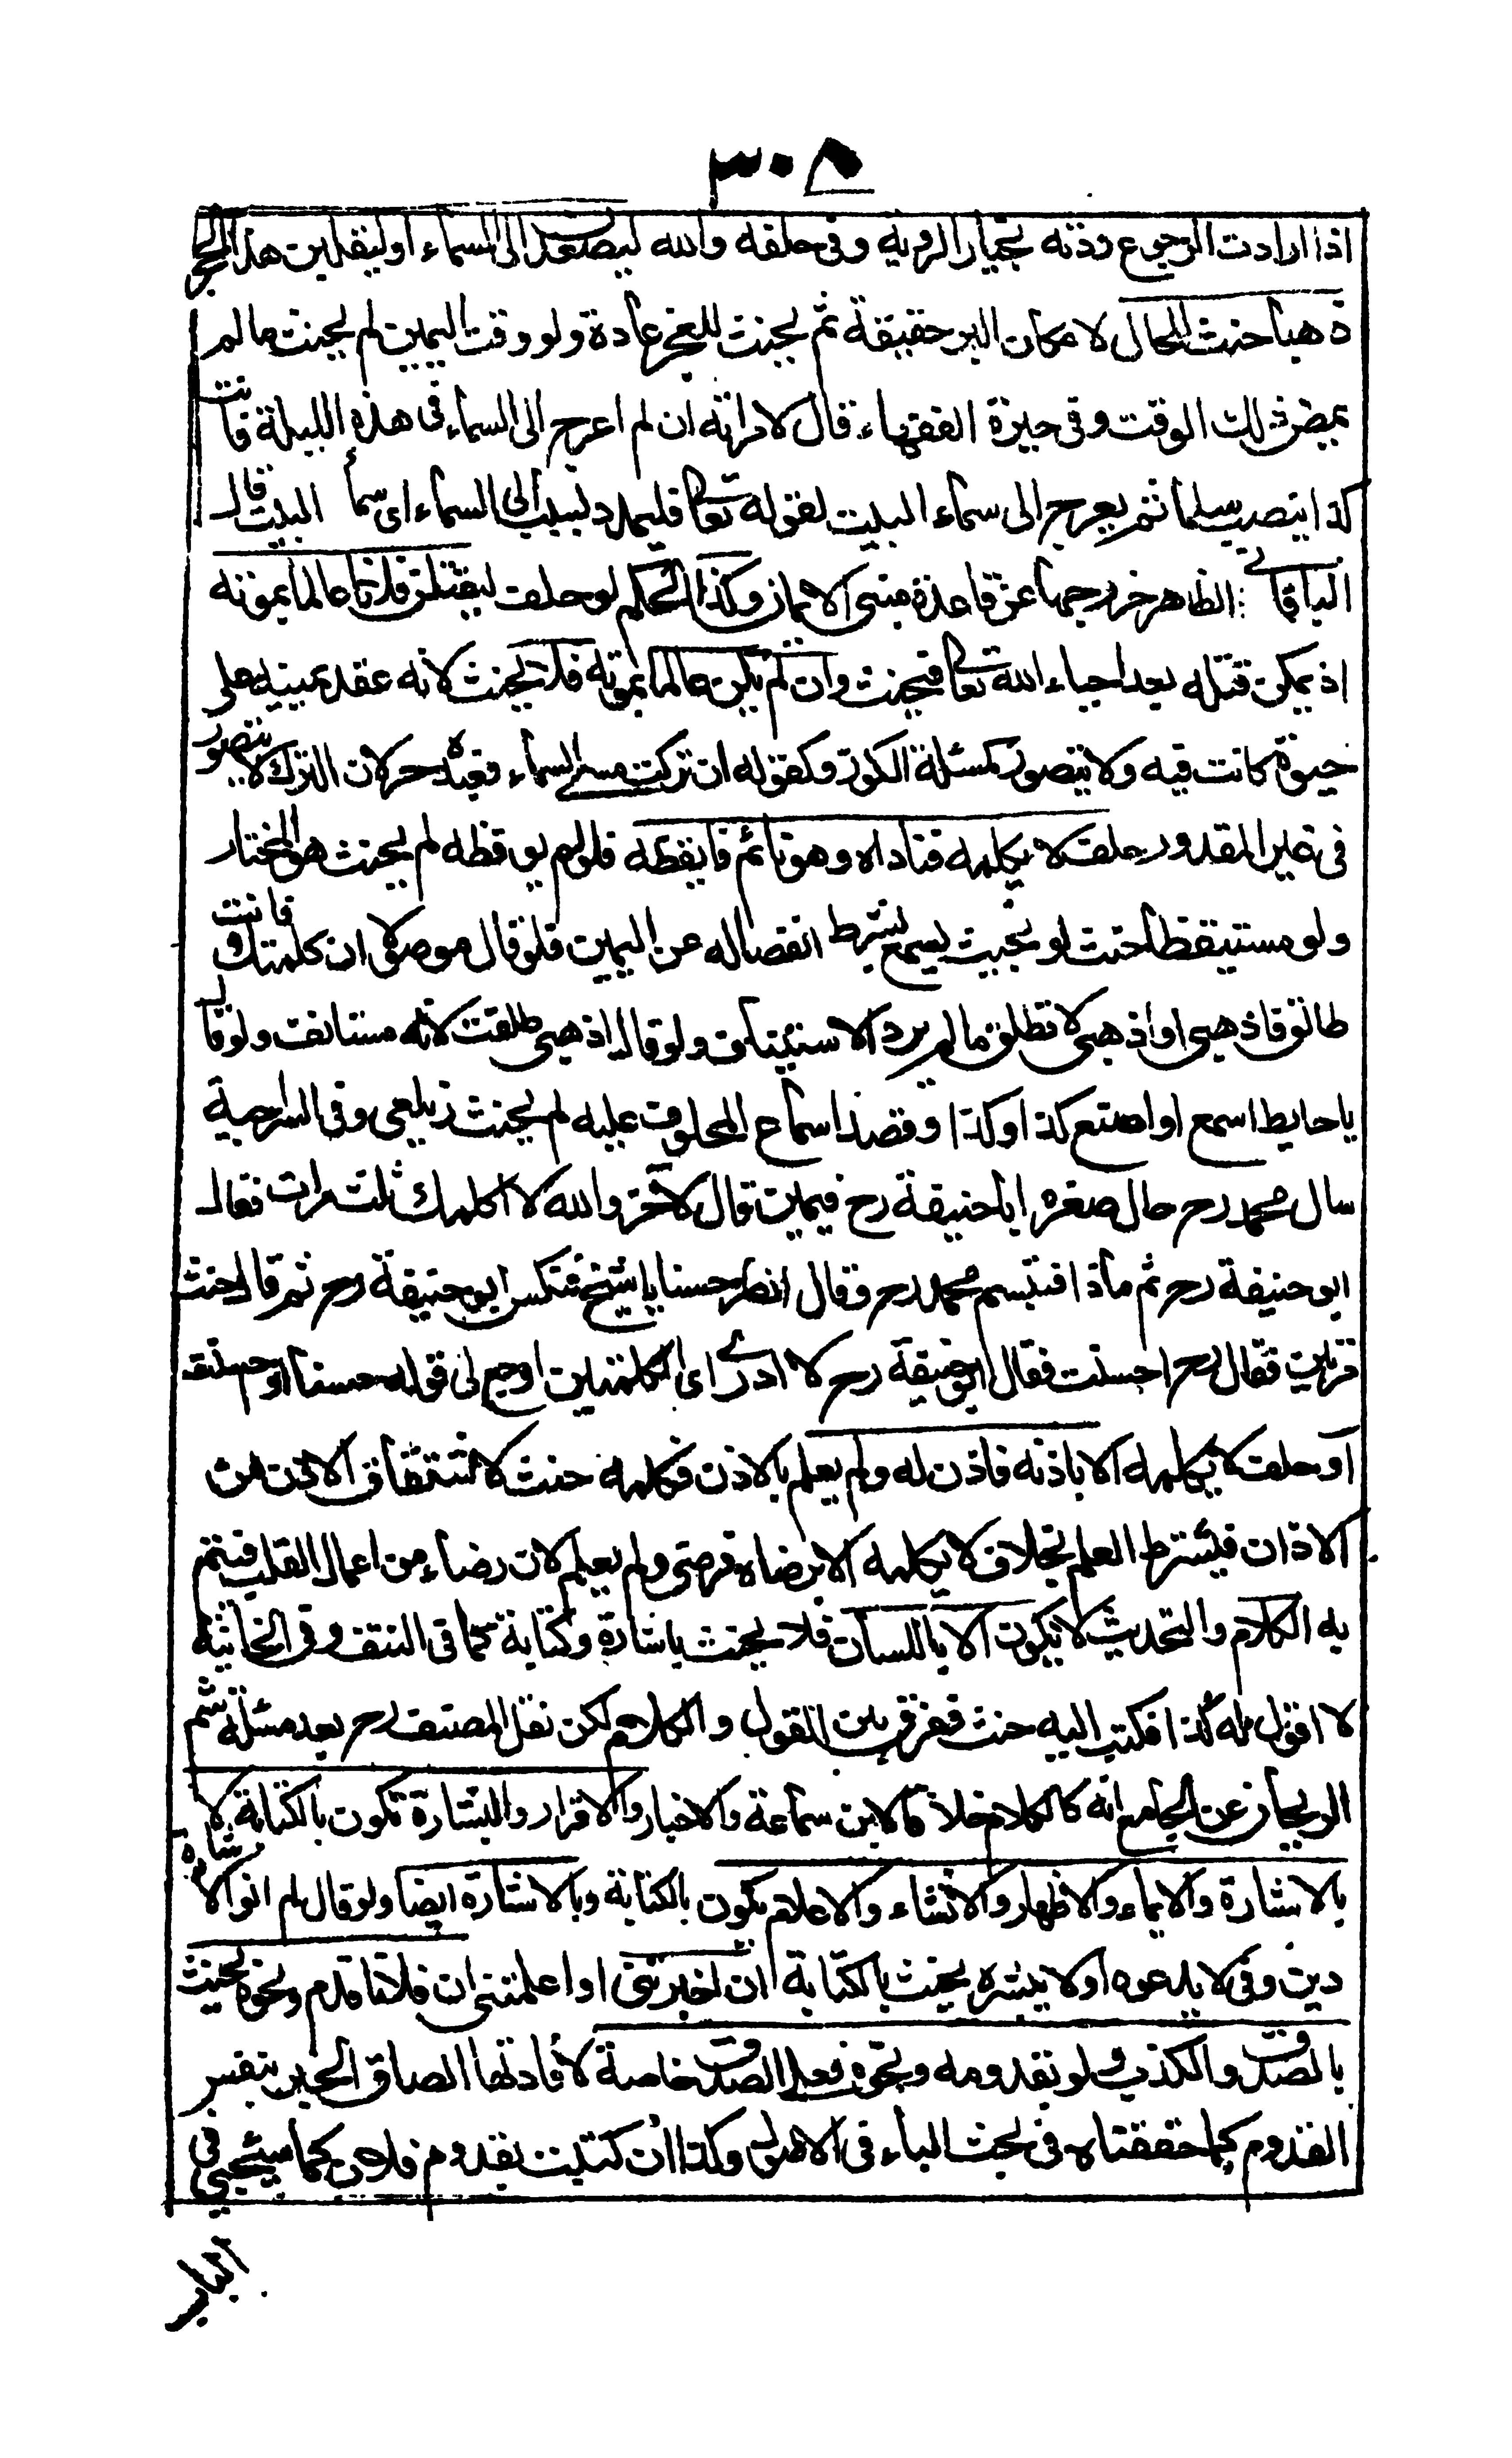 ٣٠٨
اذا ارادت الرجوع ردته بخيار الروية وفى حلفه والله ليصعدن الى السماء او ليقلبن هذا الحجر
ذهبا حنث للحال لامكان البر حقيقة ثم يحنث للعجز عادة ولو وقت اليمين لم يحنث ما لم
يمض ذلك الوقت وفى حيرة الفقهاء قال لامراته ان لم اعرج الى السماء فى هذه الليلة فانت
كذا ينصب سلما ثم يعرج الى سماء البيت لقوله تعالى فليمدد بسبب الى السماء اى سماء البيت قال
الباقانى الظاهر خروجها عن قاعدة مبنى الايمان وكذا الحكم لو حلف ليقتلن فلانا عالما بموته
اذ يمكن قتله بعد احياء الله تعالى فيحنث وان لم يكن عالما بموته فلا يحنث لانه عقد يمينه على
حيوة كانت فيه ولا يتصور كمسئلة الكوز وكقوله ان تركت مس السماء فعبده حر لان الترك لا يتصور
فى غير المقدور حلف لا يكلمه فناداه وهو نائم فايقظه فلو لم يوقظه لم يحنث هو المختار
ولو مستيقظا حنث لو بحيث يسمع بشرط انفصاله عن اليمين فلو قال موصولا ان كلمتك فانت
طالق فاذهبى او اذهبى لا تطلق ما لم يرد الاستيناف ولو قال اذهبى طلقت لانه مستانف ولو قال
يا حايط اسمع او اصنع كذا او كذا وقصد اسماع المحلوف عليه لم يحنث زيلعى وفى السراجية
سال محمد رح حال صغره ابا حنيفة رح فيمن قال لآخر والله لا اكلمك ثلث مرات فقال
ابو حنيفة رح ثم ماذا فتبسم محمد رح وقال انظر حسنا يا شيخ فنكس ابو حنيفة رح ثم قال حنث
مرتين فقال رح احسنت فقال ابو حنيفة رح لا ادرى اى الكلمتين اوجع لى قوله حسنا او احسنت
او حلف لا يكلمه الا باذنه فاذن له ولم يعلم بالاذن فكلمه حنث لاشتقاق الاذن من
الاذان فيشترط العلم بخلاف لا يكلمه الا برضاه فرضى ولم يعلم لان رضاء من اعمال القلب فيتم
به الكلام والتحديث لا يكون الا باللسان فلا يحنث باشارة وكتابة كما فى النتف وفى الخانية
لا اقول له كذا فكتب اليه حنث ففرق بين القول والكلام لكن نقل المصنف رح بعد مسئلة شم
الريحان عن الجامع انه كالكلام خلافا لابن سماعة والاخبار والاقرار والبشارة تكون بالكتابة لا
بالاشارة والايماء والاظهار والافشاء والاعلام يكون بالكتابة وبالاشارة ايضا ولو قال لم انو الاشارة
دين وفى لا يدعوه او لا يبشره يحنث بالكتابة ان اخبرتنى او اعلمتنى ان فلانا قدم ونحوه يحنث
بالصدق والكذب ولو بقدومه ونحوه فعلى الصدق خاصة لافادتها الصاق الخبر بنفس
القدوم كما حققناه فى بحث الباء فى الاصول وكذا ان كتبت بقدوم فلان كما سيجيئ فى